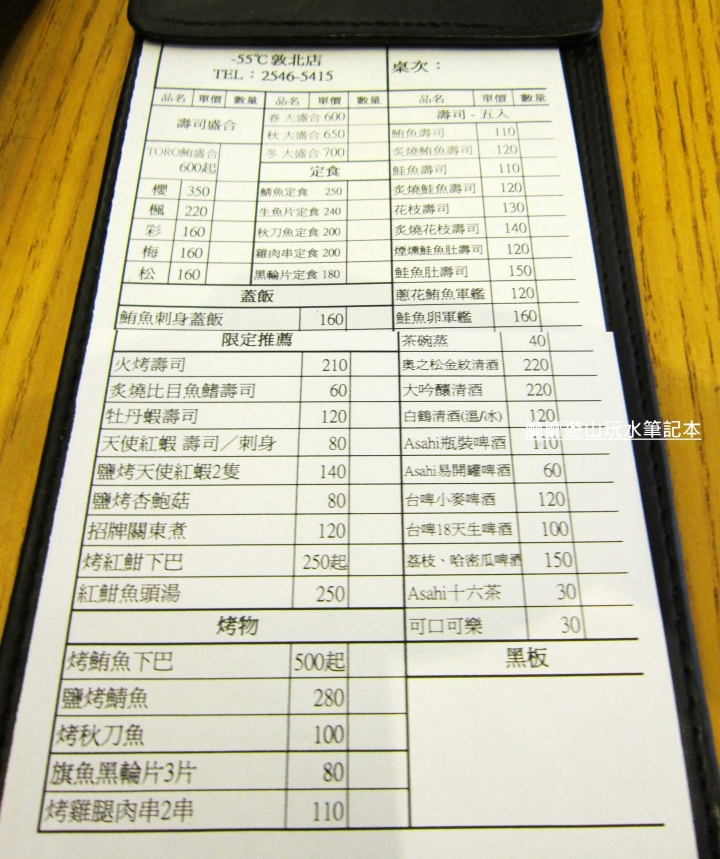 -55℃敦北店
TEL：2546-5415
桌次：
品名 單價 數量 品名 單價 數量 品名 單價 數量
壽司盛合
TORO鮪盛合
600起
櫻 350
楓 220
彩 160
梅 160
松 160
春 大盛合 600
秋 大盛合 650
冬 大盛合 700
定食
鯖魚定食 250
生魚片定食 240
秋刀魚定食 200
雞肉串定食 200
黑輪片定食 180
蓋飯
鮪魚刺身蓋飯 160
限定推薦
火烤壽司 210
炙燒比目魚鰭壽司 60
牡丹蝦壽司 120
天使紅蝦 壽司／刺身 80
鹽烤天使紅蝦2隻 140
鹽烤杏鮑菇 80
招牌關東煮 120
烤紅魽下巴 250起
紅魽魚頭湯 250
烤物
烤鮪魚下巴 500起
鹽烤鯖魚 280
烤秋刀魚 100
旗魚黑輪片3片 80
烤雞腿肉串2串 110
壽司 - 五入
鮪魚壽司 110
炙燒鮪魚壽司 120
鮭魚壽司 110
炙燒鮭魚壽司 120
花枝壽司 130
炙燒花枝壽司 140
煙燻鮭魚肚壽司 120
鮭魚肚壽司 150
蔥花鮪魚軍艦 120
鮭魚卵軍艦 160
茶碗蒸 40
奧之松金紋清酒 220
大吟釀清酒 220
白鶴清酒(溫/冰) 120
Asahi瓶裝啤酒 110
Asahi易開罐啤酒 60
台啤小麥啤酒 120
台啤18天生啤酒 100
荔枝、哈密瓜啤酒 150
Asahi十六茶 30
可口可樂 30
黑板
遊山玩水筆記本